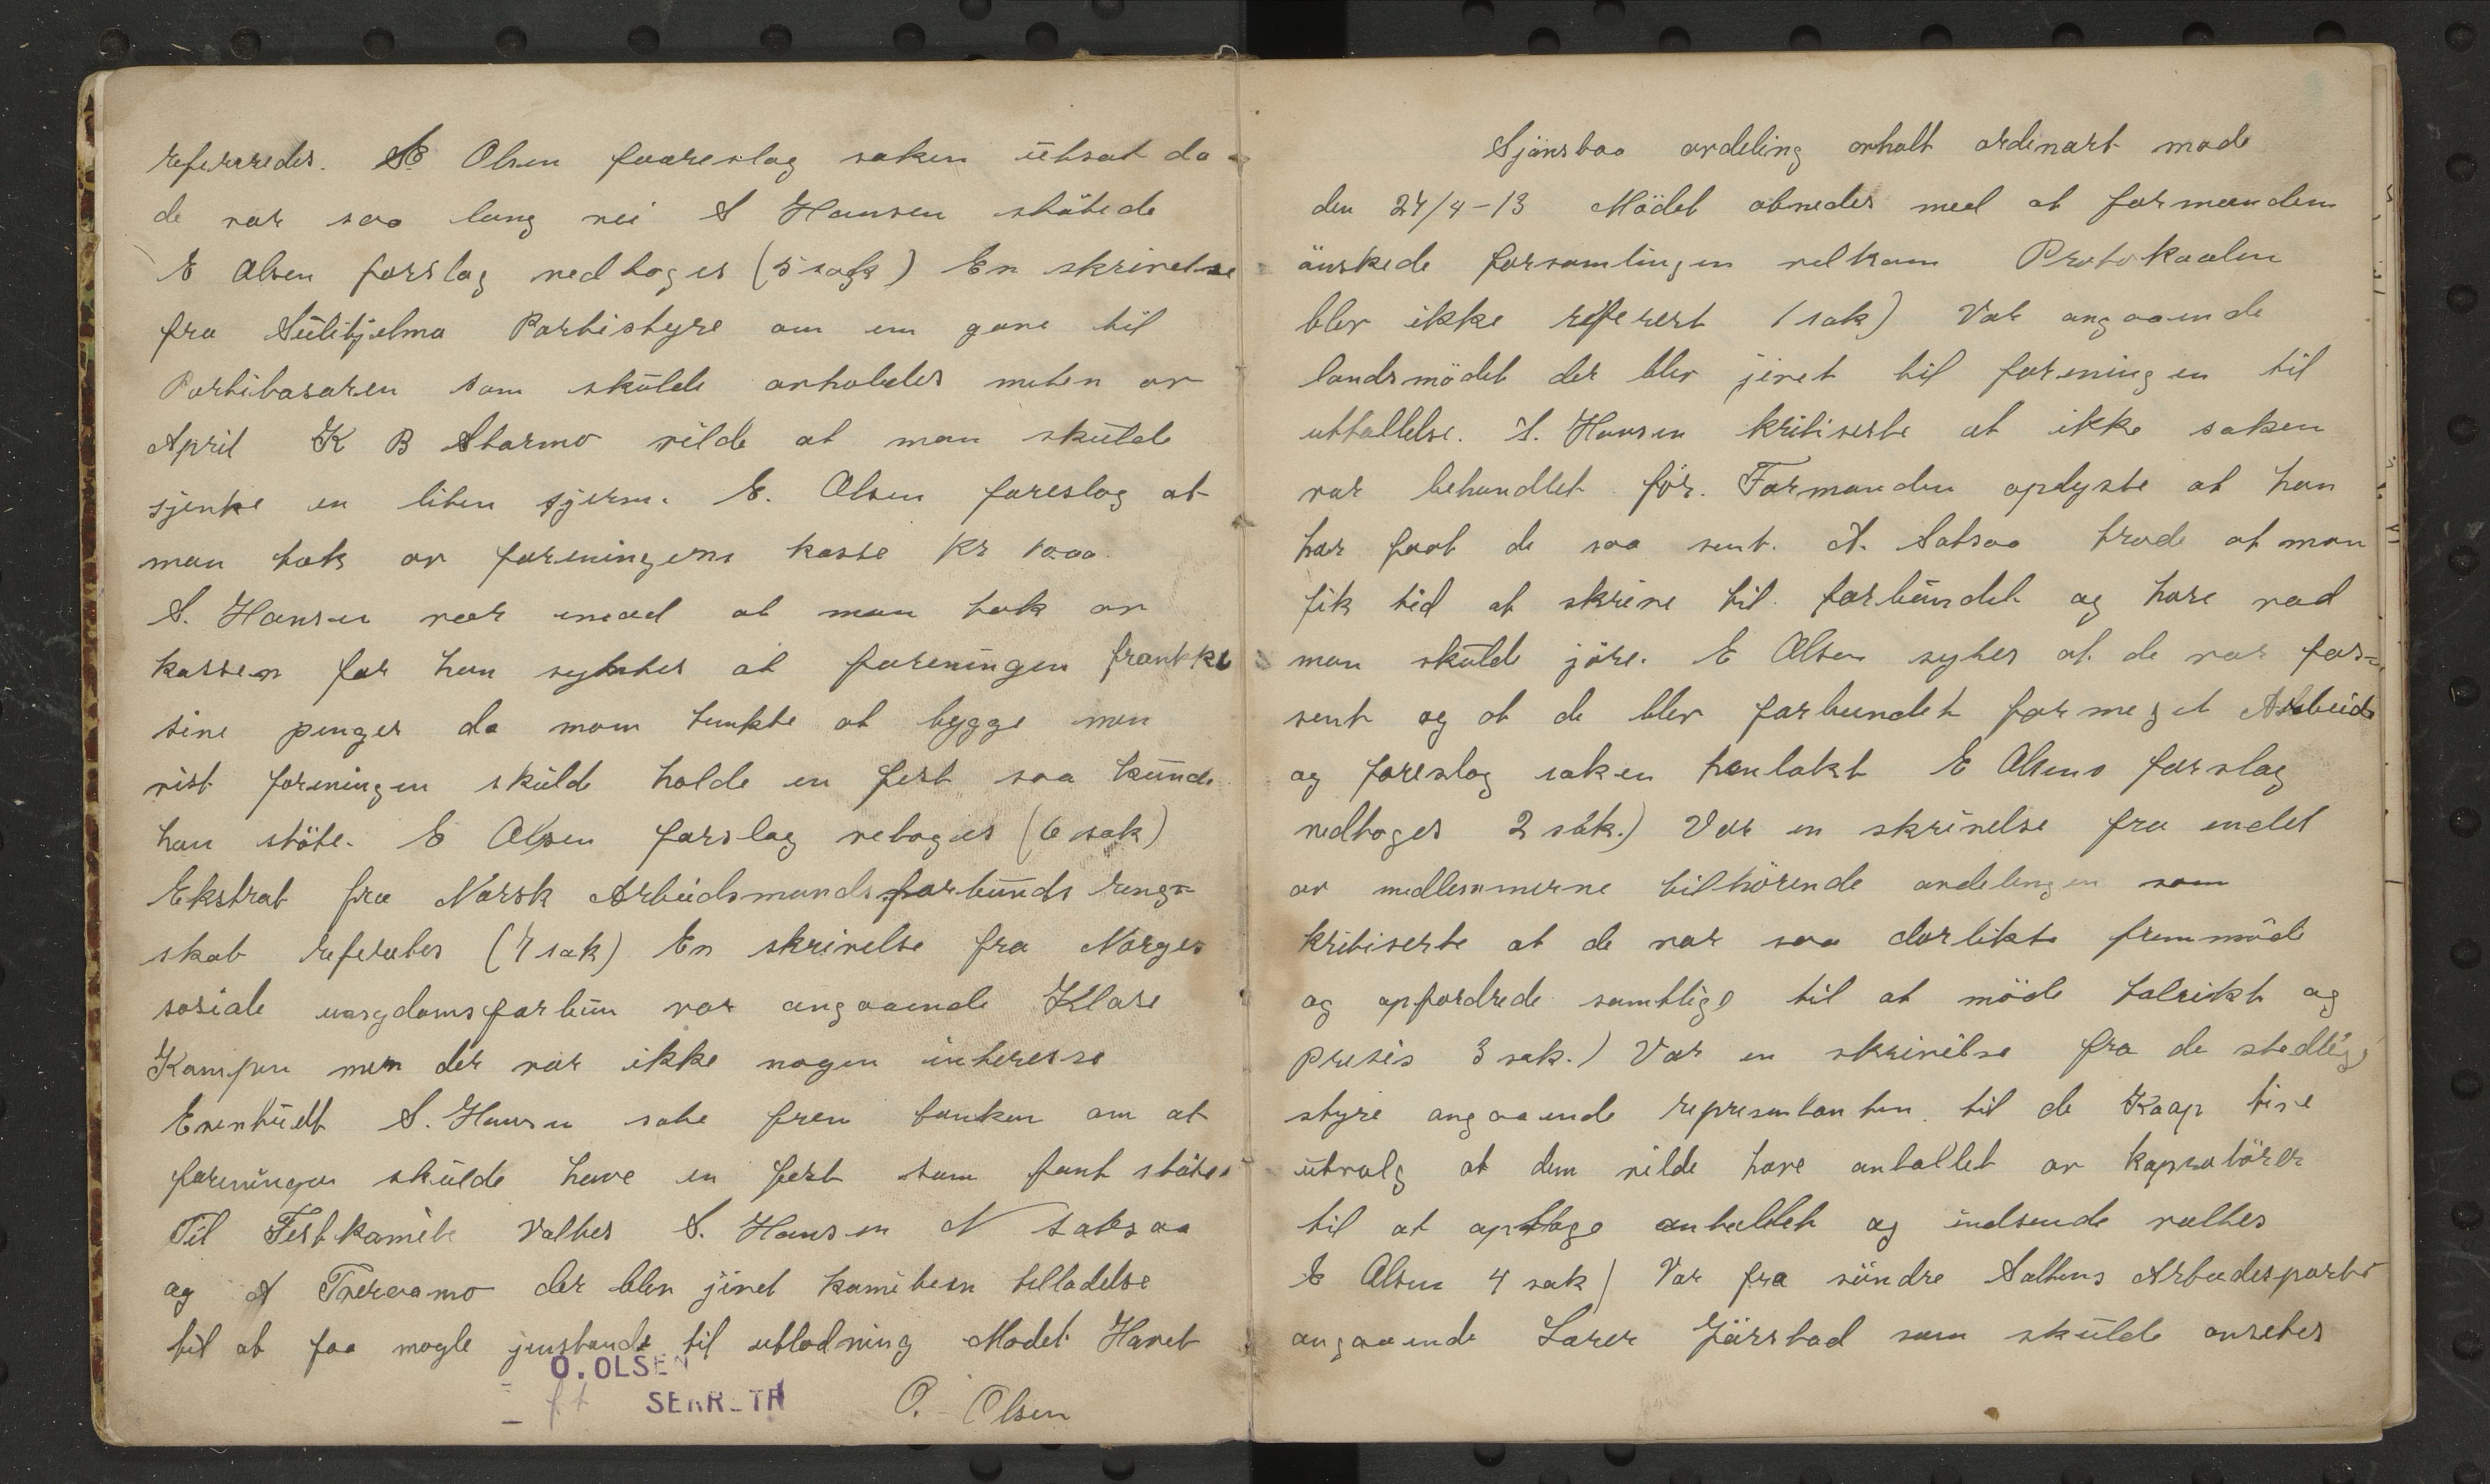 referredes. E Olsen foореslog saken utsat da
de var saa lang vei S Hansen støtede
E Olsen forslag vedtoges (5 sak) En skrivelse
fra Sülitjelma Partistyre om en gave til
Partibasaren som skülde avholdes uten av
April K B Starmo vilde at man skülde
sjenke en liten sjerm. E. Olsen foreslog at
man tok av foreningens kasse kr 10.00
S. Hansen var imod at man tok av
kassen for han syntes at foreningen
sine penger da man tenkte at bygge men
vist foreningen skülde holde en fest saa künde
han støte. E Olsen forslag vetoges (6 sak)
Ekstrat fra Norsk Arbeidsmandsforbünds reng-
skab referetes (7 sak) En skrivelse fra Norges
sosiale ungdomsforbün var angaaende Klase
Kampen men der var ikke nogen interesse
Eventüelt S. Hansen sate frem tanken om at
foreningen skülde have en fest som fant støte.
Til Festkamite Valtes S. Hansen N Satsaa
og A Tveraamo der blev jivet kamiteen telladelse
til at faa nogle jenstande til utlodning Modet Hævet
O. OLSEN
SEKR_TR
O. Olsen
Sjønstaa avdeling avholt ordinært møde
den 27/4-13 Mödet abnedes med at formanden
önskede forsamlingen velkom Protokaalen
blev ikke referert 1 sak) Var angaaende
landsmödet der blev jivet til foreningen til
uttallelse. S. Hansen kritiserte at ikke saken
var behandlet för. Formanden oplyste at han
har faat de saa sent. A. Satsaa trode at man
fik tid at skrive til forbündet og høre vad
man skülde jöre. E Olsen sytes at de var for-
sent og at de blev forbundet formeget Arbeide
og foreslog saken henlakt E Olsens forslag
vedtoges 2 sak.) Var en skrivelse fra endel
av medlemmerne tilhörende avdelingen som
kritiserte at de var saa darlikt fremmöde
og opfordrede samtlige til at möde talrikt og
presis 3 sak.) Var en skrivelse fra de stedlige
styre angaaende representanten til de Kaap tive
ütvalg at dem vilde have antallet av kaprotörer
til at optage antallet og indsende valtes
E Olsen 4 sak) Var fra söndre Saltens Arbeidesparti
angaaende Lærer Järstad som skülde ansetes